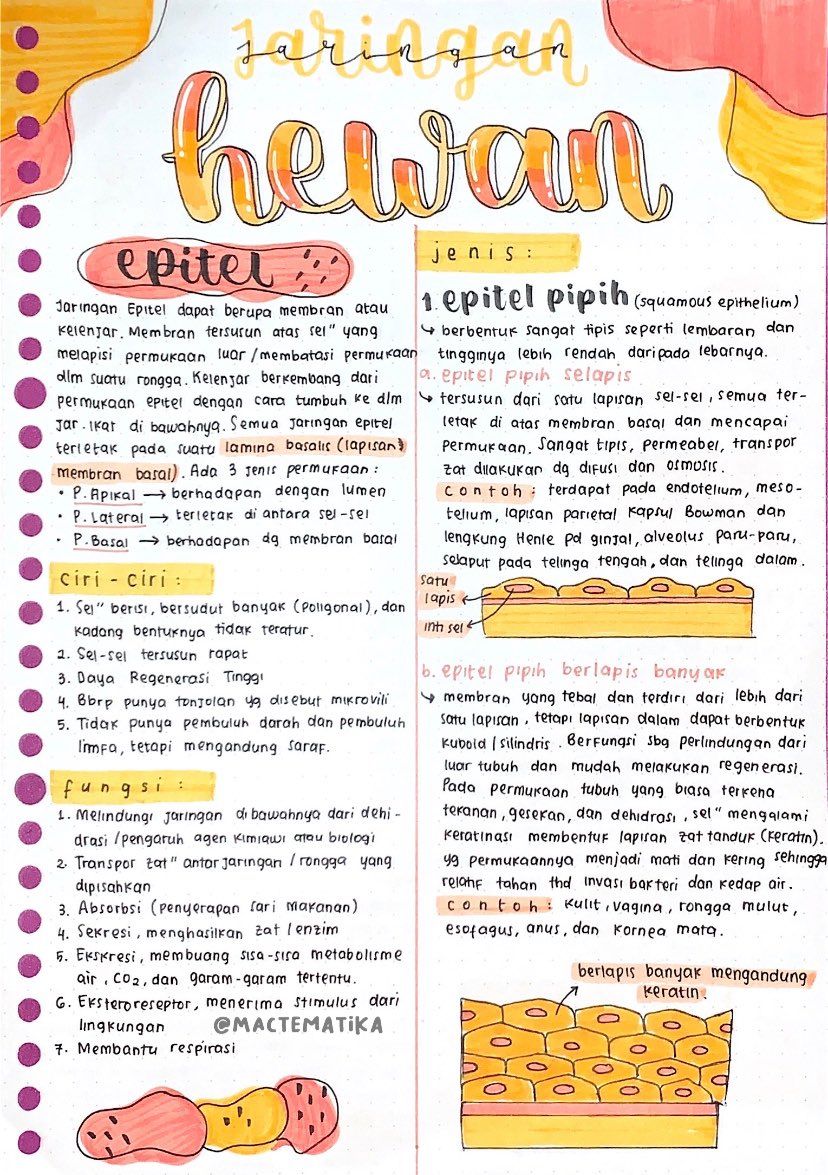 jaringan
hewan
epitel
Jaringan Epitel dapat berupa membran atau
kelenjar. Membran tersusun atas sel" yang
melapisi permukaan luar/membatasi permukaan
dlm suatu rongga. Kelenjar berkembang dari
permukaan epitel dengan cara tumbuh ke dlm
jar. ikat di bawahnya. Semua jaringan epitel
terletak pada suatu lamina basalis (lapisan)
membran basal). Ada 3 jenis permukaan:
• P. Apikal → berhadapan dengan lumen
• P. Lateral → terletak di antara sel-sel
• P. Basal → berhadapan dg membran basal
ciri-ciri:
1. Sel" berisi, bersudut banyak (poligonal), dan
kadang bentuknya tidak teratur.
2. Sel-sel tersusun rapat
3. Daya Regenerasi Tinggi
4. Bbrp punya tonjolan yg disebut mikrovili
5. Tidak punya pembuluh darah dan pembuluh
limfa, tetapi mengandung saraf.
fungsi:
1. Melindungi jaringan dibawahnya dari dehi-
drasi/pengaruh agen kimiawi atau biologi
2. Transpor zat" antar jaringan/rongga yang
dipisahkan
3. Absorbsi (penyerapan sari makanan)
4. Sekresi, menghasilkan zat/enzim
5. Ekskresi, membuang sisa-sisa metabolisme
air, CO2, dan garam-garam tertentu.
6. Eksteroreseptor, menerima stimulus dari
lingkungan
@MACTEMATiKA
7. Membantu respirasi
jenis:
1. epitel pipih (squamous epithelium)
↳ berbentuk sangat tipis seperti lembaran dan
tingginya lebih rendah daripada lebarnya.
a. epitel pipih selapis
↳ tersusun dari satu lapisan sel-sel, semua ter-
letak di atas membran basal dan mencapai
permukaan. Sangat tipis, permeabel, transpor
zat dilakukan dg difusi dan osmosis.
contoh: terdapat pada endotelium, meso-
telium, lapisan parietal kapsul Bowman dan
lengkung Henle pd ginjal, alveolus paru-paru,
selaput pada telinga tengah, dan telinga dalam.
satu
lapis
inti sel
b. epitel pipih berlapis banyak
↳ membran yang tebal dan terdiri dari lebih dari
satu lapisan, tetapi lapisan dalam dapat berbentuk
kuboid/silindris. Berfungsi sbg perlindungan dari
luar tubuh dan mudah melakukan regenerasi.
Pada permukaan tubuh yang biasa terkena
tekanan, gesekan, dan dehidrasi, sel" mengalami
keratinasi membentuk lapisan zat tanduk (keratin).
yg permukaannya menjadi mati dan kering sehingga
relatif tahan thd invasi bakteri dan kedap air.
contoh: kulit, vagina, rongga mulut,
esofagus, anus, dan kornea mata.
berlapis banyak mengandung
keratin.